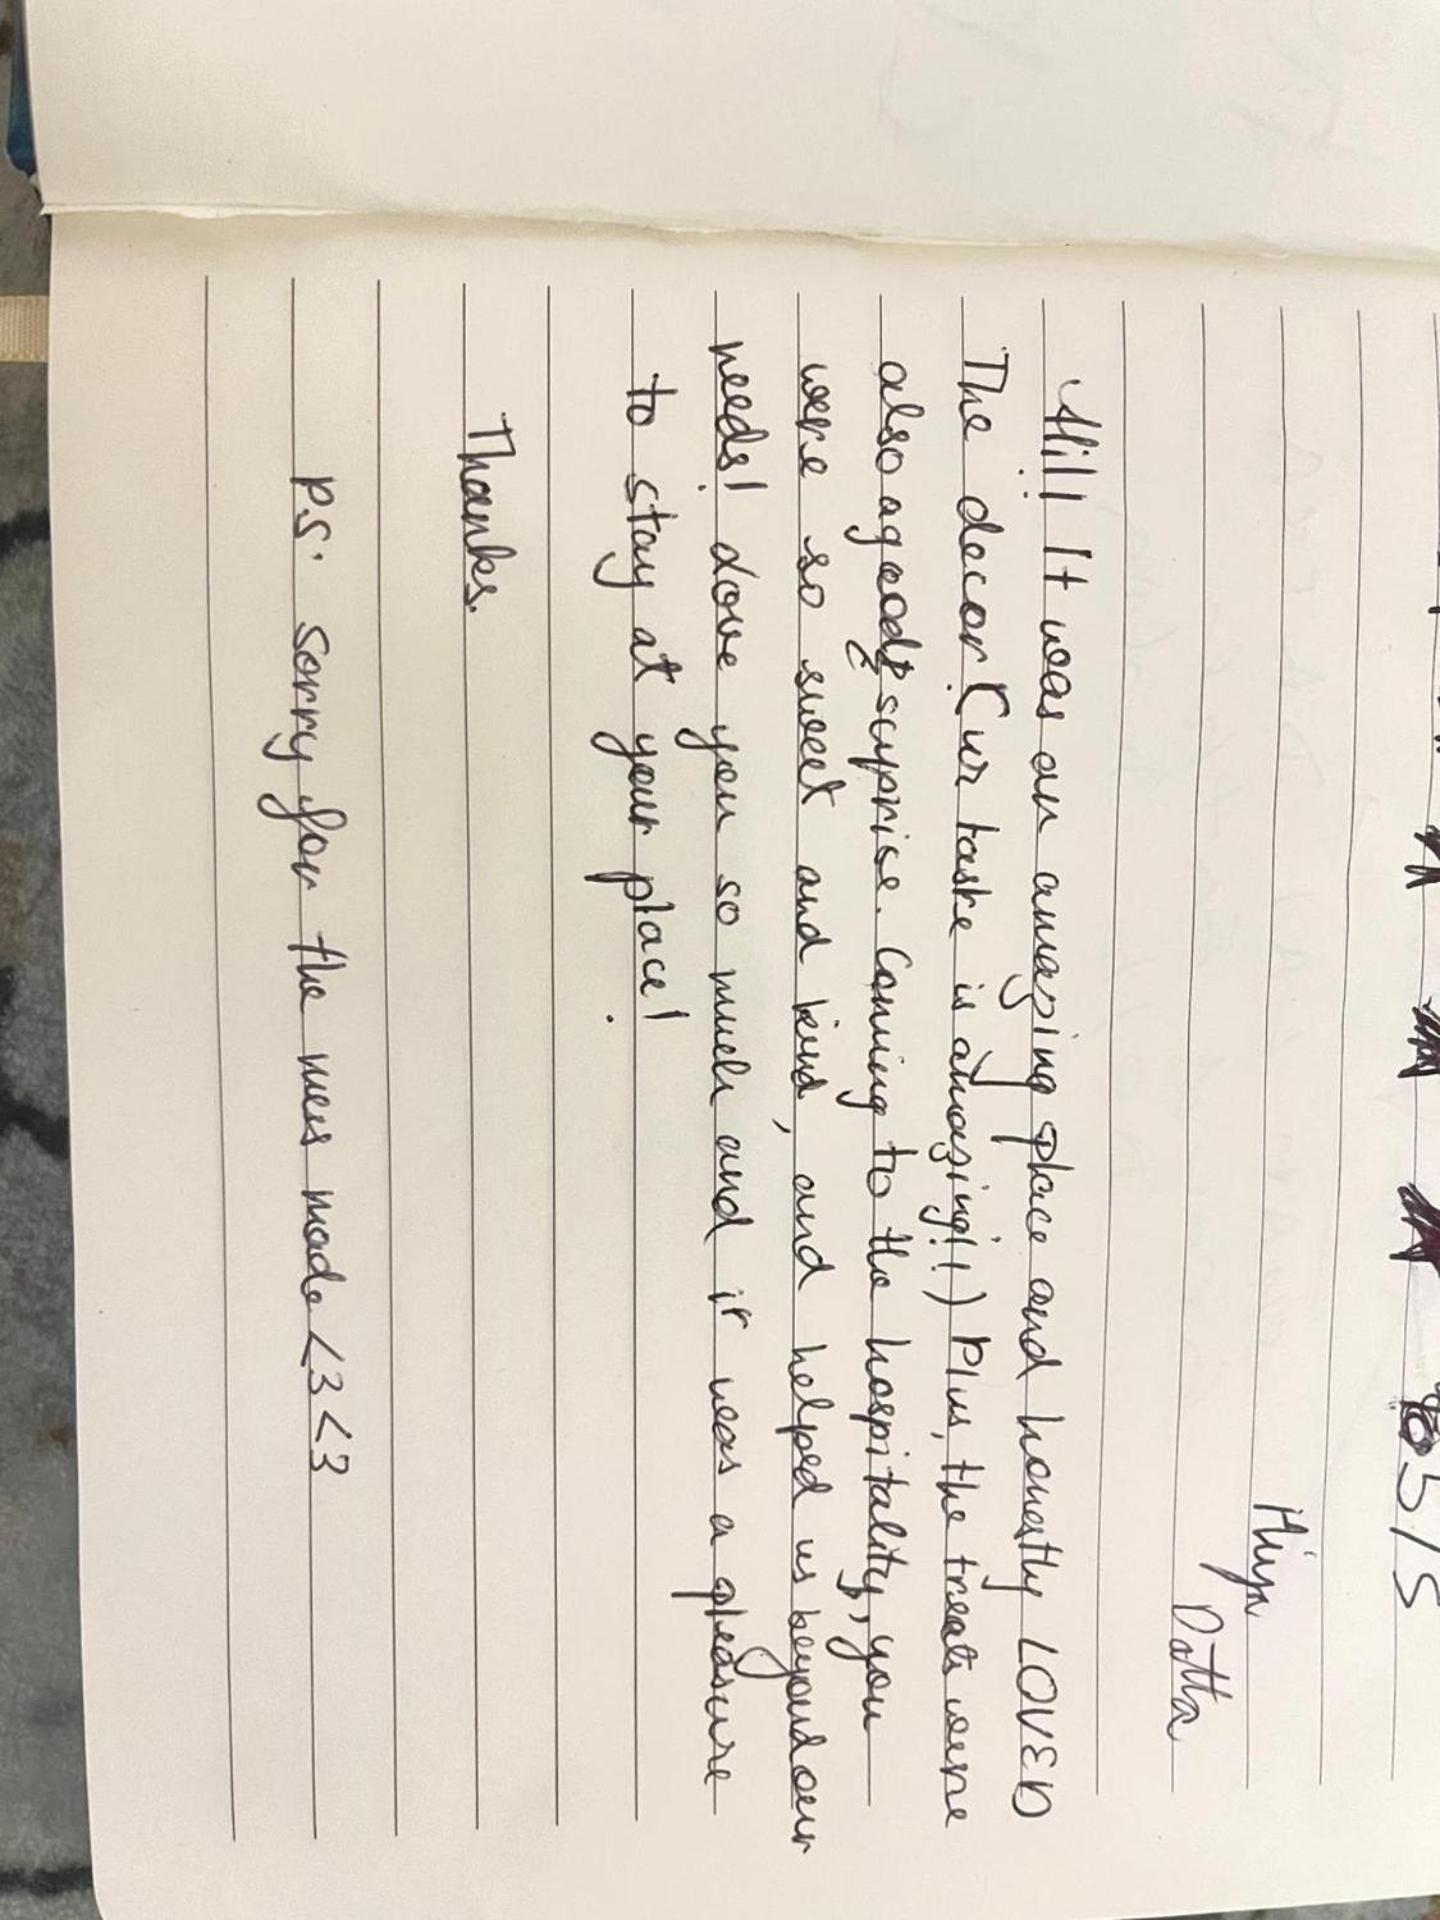 5/5
Hiya
Datta
Hi!! It was an amazing place and honestly LOVED
The decor (ur taste is amazing!!) Plus, the treats were
also a good surprise. Coming to the hospitality, you
were so sweet and kind, and helped us beyond our
needs! Love you so much and it was a pleasure
to stay at your place!
Thanks.
P.S. sorry for the mess made <3 <3